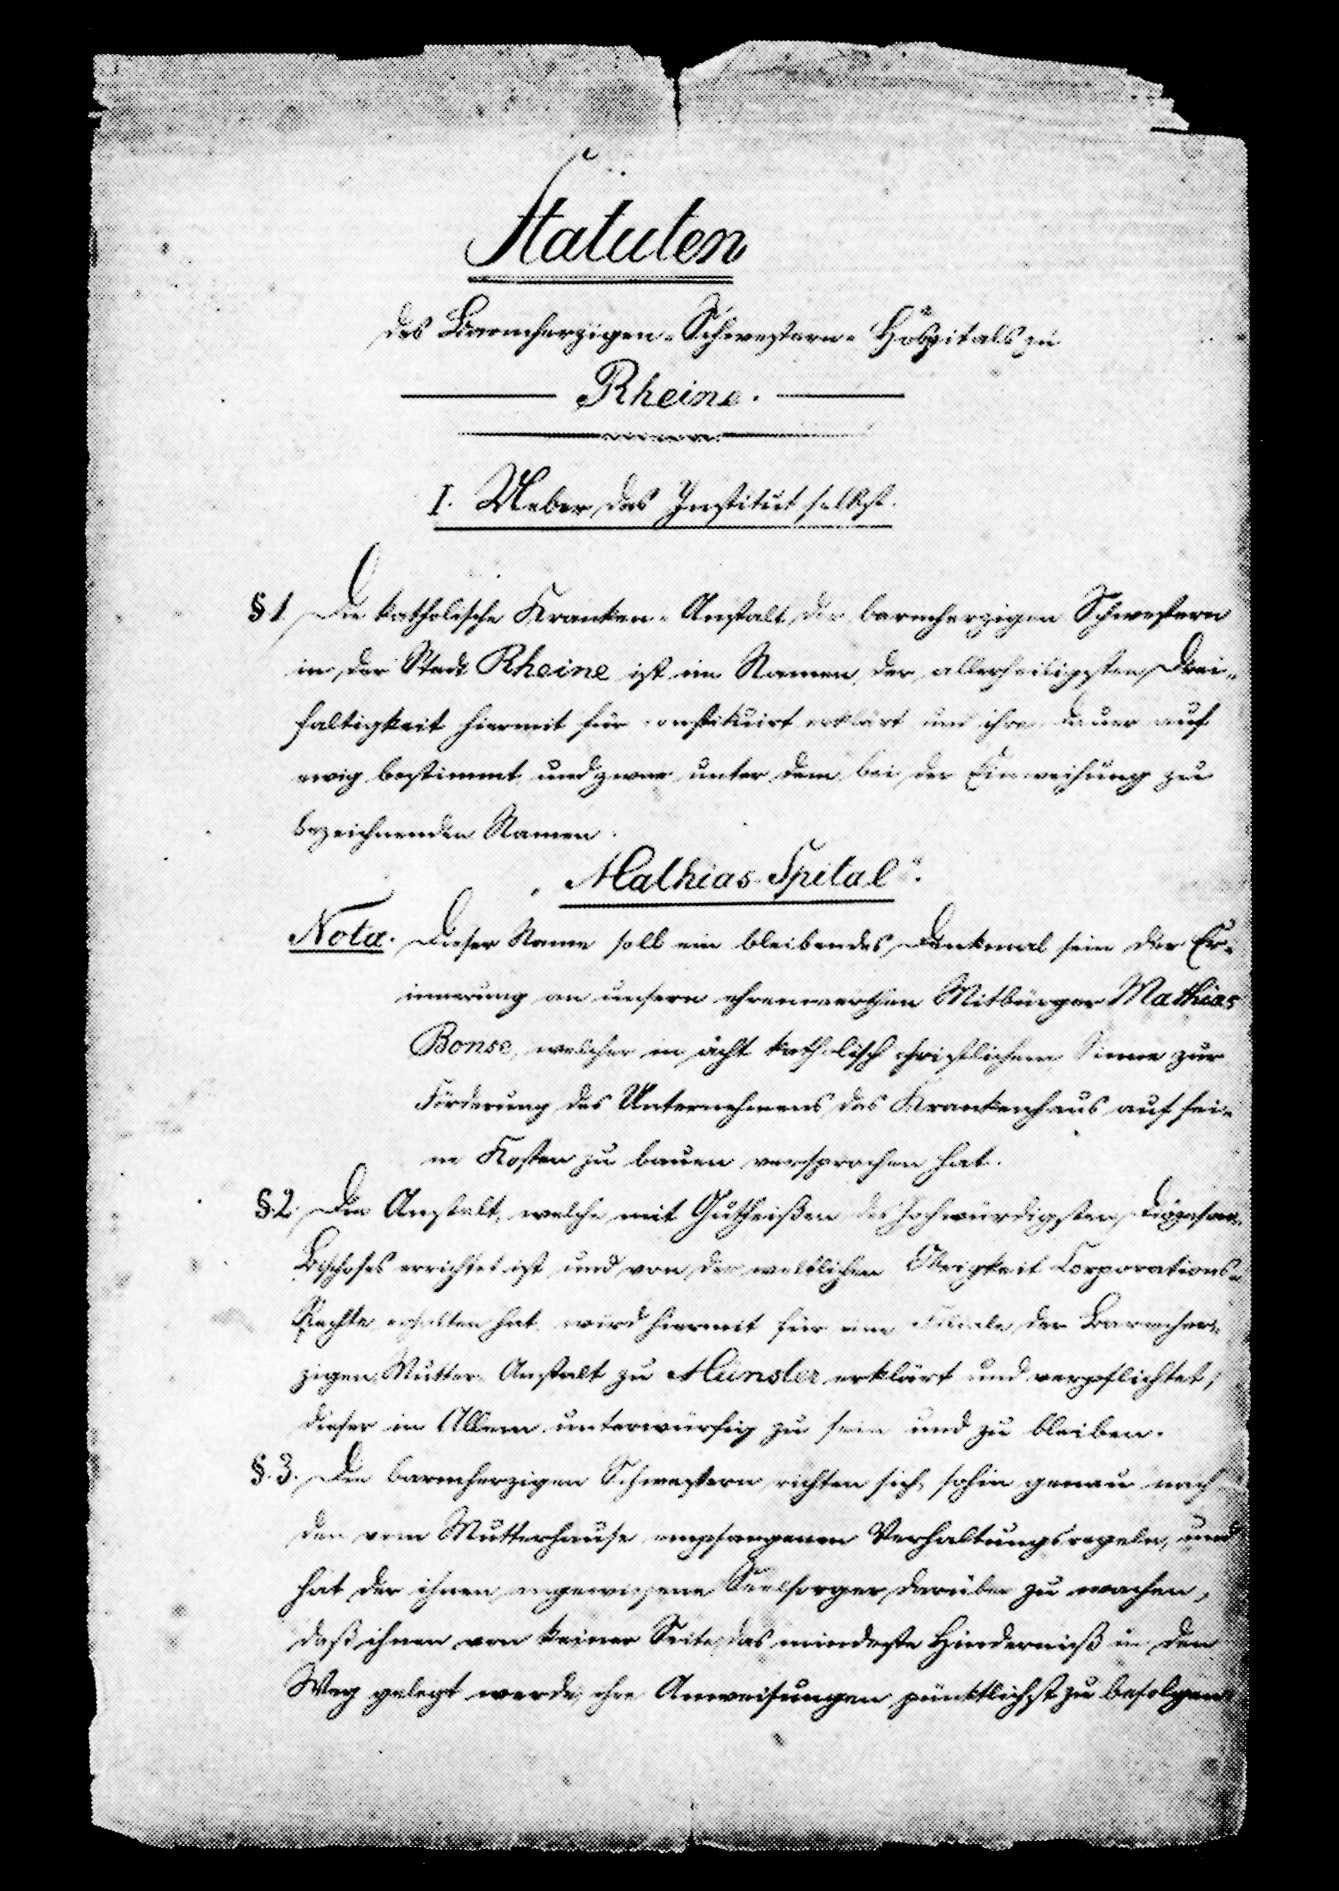 Statuten
des Barmherzigen-Schwestern-Hospitals zu
Rheine.
I. Ueber das Institut selbst.
§ 1 Die katholische Kranken-Anstalt der barmherzigen Schwestern
in der Stadt Rheine ist im Namen der allerheiligsten Drei-
faltigkeit hiermit für constituirt erklärt und ihre Dauer auf
ewig bestimmt und zwar unter dem bei der Einweihung zu
bezeichnenden Namen
„Mathias-Spital“.
Nota. Dieser Name soll ein bleibendes Denkmal sein der Er-
innerung an unsern ehrenwerthen Mitbürger Mathias
Bonse, welcher in ächt katholisch christlichem Sinne zur
Förderung des Unternehmens das Krankenhaus auf sei-
ne Kosten zu bauen versprochen hat.
§. 2. Die Anstalt, welche mit Gutheißen des hochwürdigsten Diözesan-
Bischofes errichtet ist und von der weltlichen Obrigkeit Corporations-
Rechte erhalten hat, wird hiermit für eine Filiale der Barmher-
zigen Mutter-Anstalt zu Münster erklärt und verpflichtet,
dieser in Allem unterwürfig zu sein und zu bleiben.
§. 3. Die barmherzigen Schwestern richten sich sohin genau nach
den vom Mutterhause empfangenen Verhaltungsregeln, und
hat der ihnen angewiesene Seelsorger darüber zu wachen,
daß ihnen von keiner Seite das mindeste Hinderniß in den
Weg gelegt werde, ihre Anweisungen pünktlichst zu befolgen